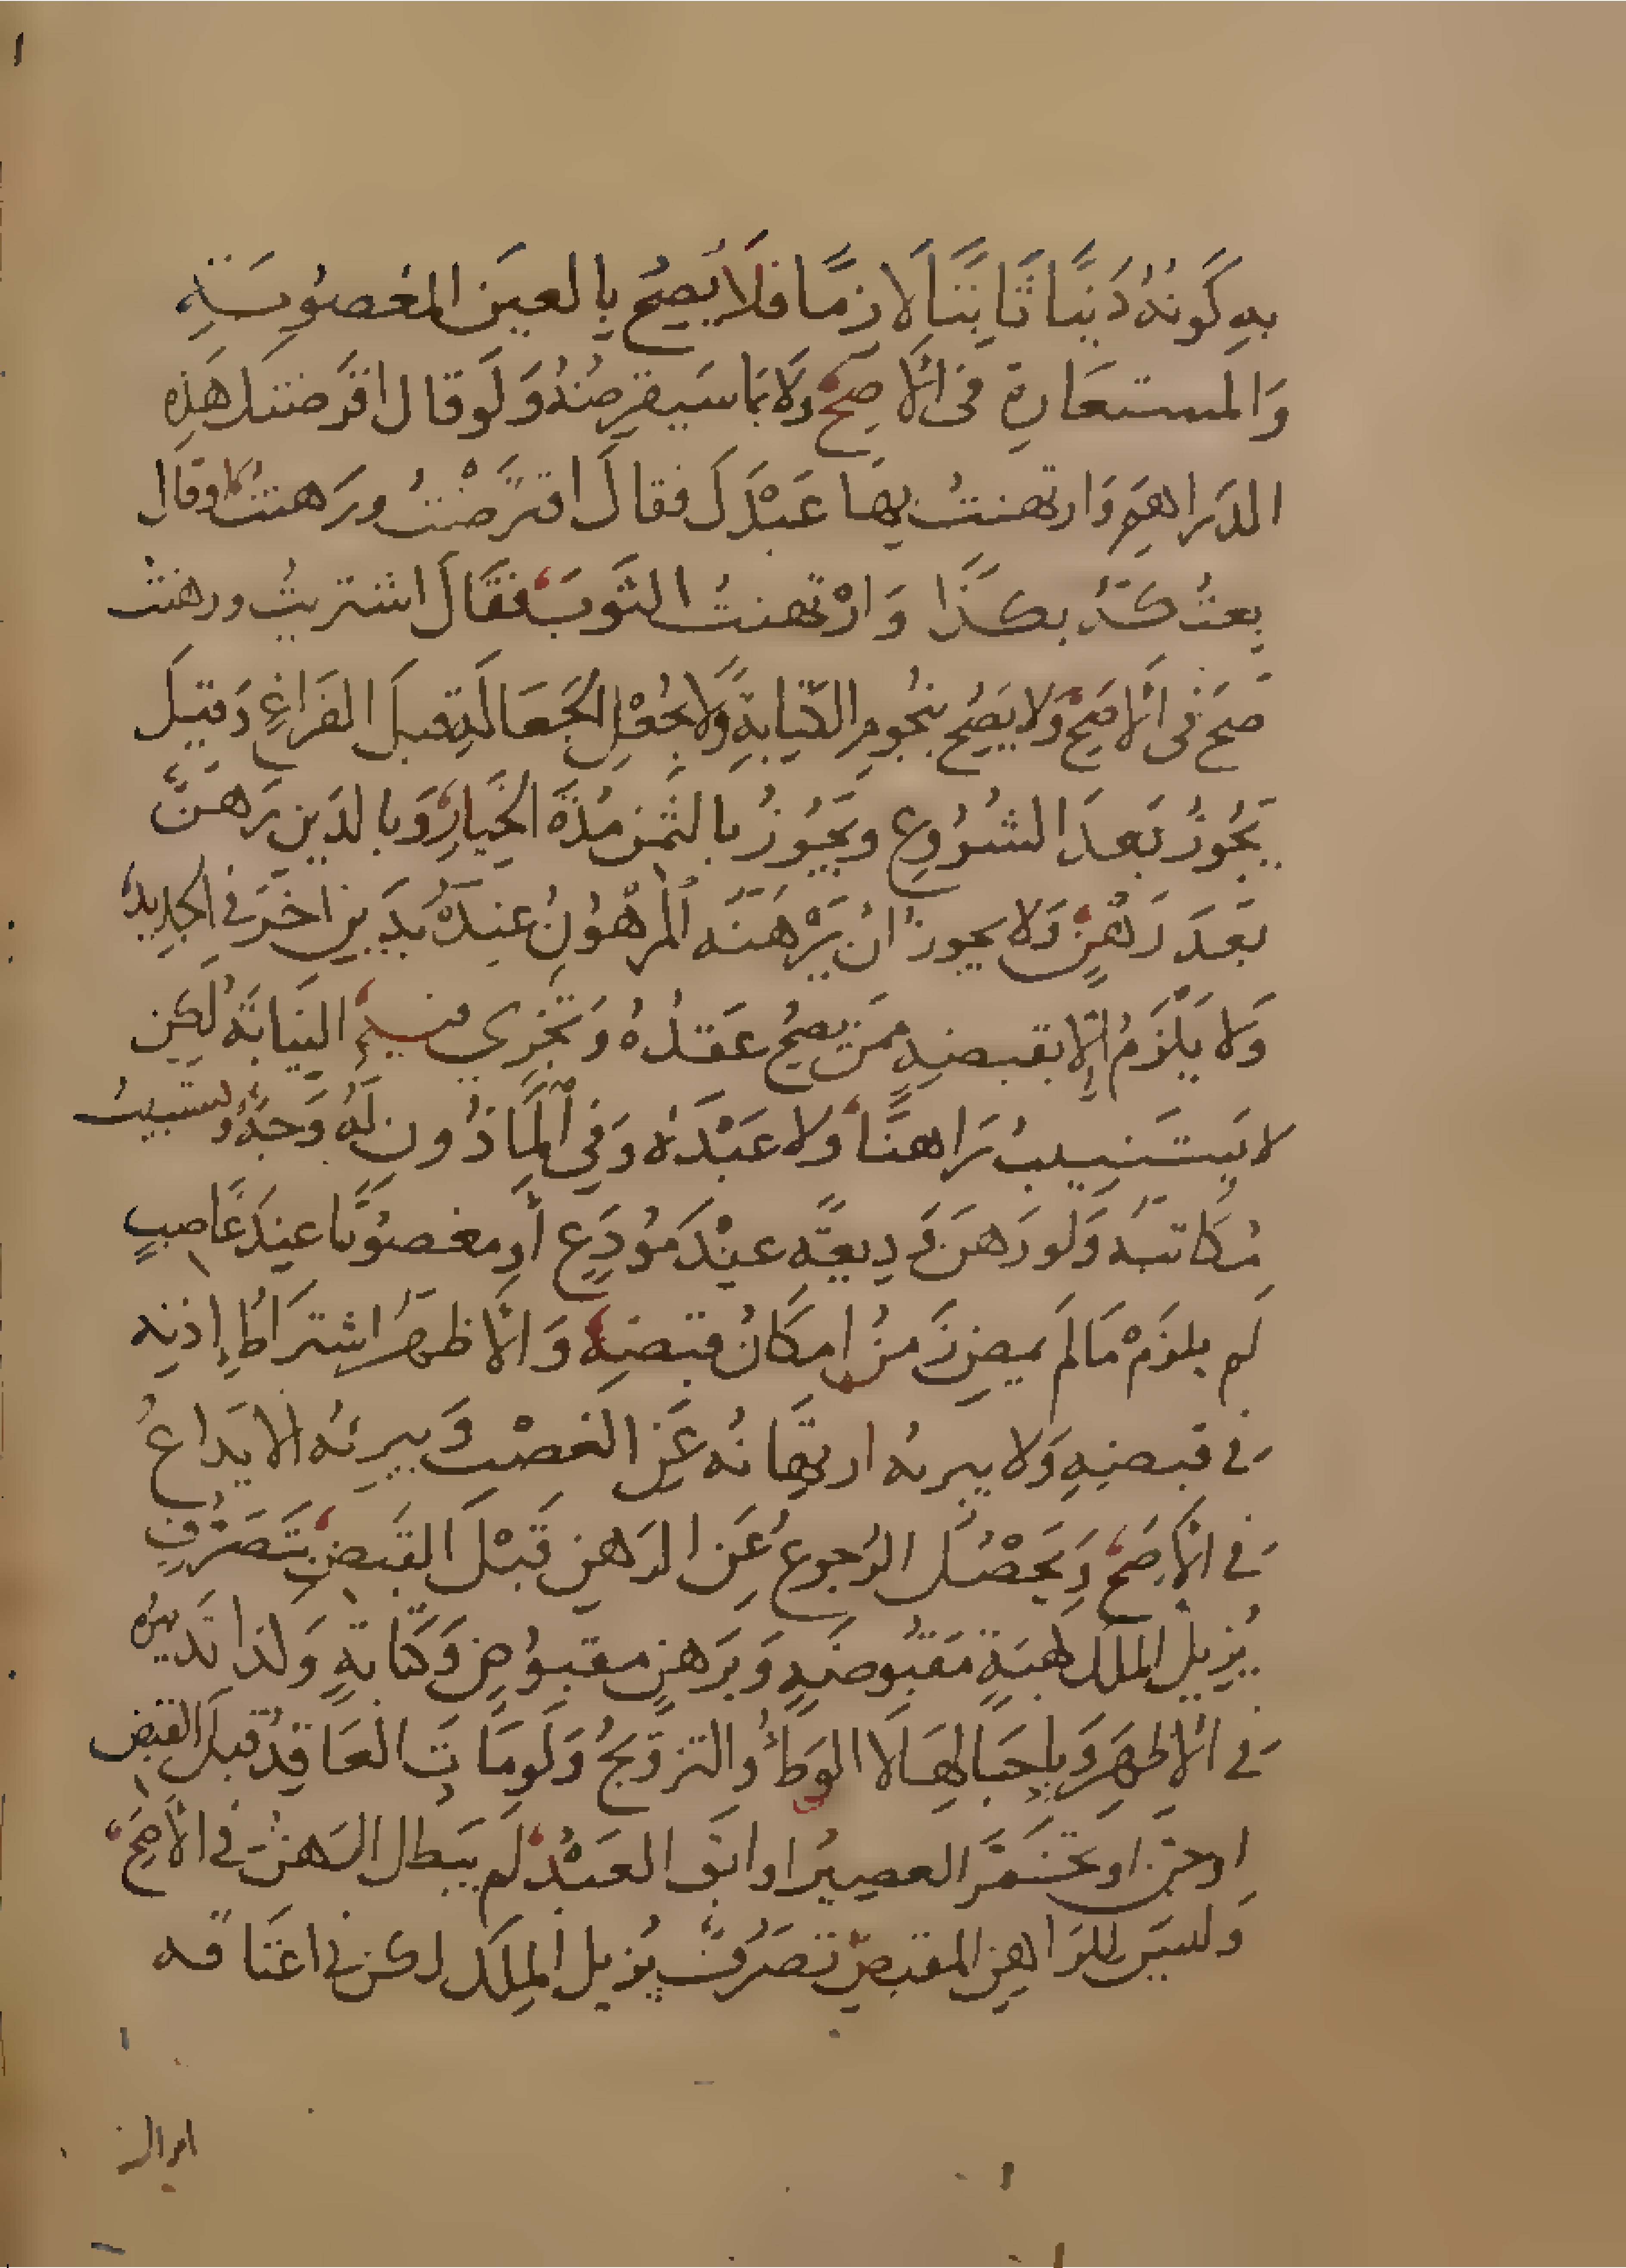 بِهِ كَونُهُ دَيْنًا ثَابِتًا لَازِمًا فَلَا يَصِحُّ بِالعَينِ المَغصُوبَةِ
وَالمُستَعَارَةِ فى الْأَصَحِّ وَلَا بمَا سَيَقرِضُهُ وَلَو قَالَ اقرَضتُكَ هَذِهِ
الدَرَاهِمَ وَارتهنتُ بِهَا عَبْدَكَ فقالَ اقتَرَضْتُ ورَهنتُ اوقال
بِعتُكَهُ بكَذَا وَارْتهنتُ الثَوبَ فقَالَ اشتريتُ ورهنتُ
صَحَ فى الْأَصَحِّ وَلَا يَصِحُّ بنُجُومِ الكِتَابَةِ وَلَا بجُعْلِ الجَعَالَةِ قبلَ الفَرَاغِ وَقيلَ
يَجُوزُ بَعدَ الشُرُوعِ وَيجُوزُ بالثَمنِ مُدَّةَ الخِيَارِ وَبالدَينِ رَهنٌ
بَعدَ رَهْنٍ وَلَا يجوزُ انْ يَرْهَنَهُ المَرْهُونُ عِندَهُ بِدَينٍ اخَرَ فى الجَدِيدِ
وَلَا يَلْزَمُ الَّا بِقَبضِهِ مِمَّن يَصِحُّ عَقدُهُ وَتَجْرِي فِيهِ النِيَابَةُ لكِن
لَا يَستَنِيبُ رَاهِنًا وَلَا عَبْدَهُ وَفى المَأذُونِ لَهُ وَجهٌ وَيستنيبُ
مُكَاتبَهُ وَلَو رَهنَ وَدِيعَةً عِنْدَ مُودَعٍ أو مغصُوبًا عِندَ غَاصِبٍ
لَم يلزَمْ مَا لَم يمضِ زَمنُ امكَانِ قَبضِهِ وَالْأظهَرُ اشترَاطُ إِذنِهِ
فى قبضِهِ وَلَا يبرئهُ ارتهَانُهُ عَنِ الغَصْبِ وَيبرِئهُ الايدَاعُ
فى الْأَصَحِّ وَيَحْصُلُ الرجوعُ عَنِ الرَهنِ قَبْلَ القَبضِ بتَصَرُّفٍ
يُزِيلُ الملكَ كهبَةٍ مَقبُوضَةٍ وَبرَهنٍ مقبُوضٍ وَكتَابَةٍ وَكذا تَدبيرُه
فى الْأظهَرِ وَبِإِحبَالِهَا لَا الوَطْءُ وَالتزويجُ وَلَو مَاتَ العَاقِدُ قبلَ القبضِ
اوجنّ اوتخَمَّرَ العصِيرُ اوابَقَ العَبْدُ لَم يَبطلِ الرهنُ فى الْأَصَحِّ
وَليسَ للرَاهِنِ المقبِضِ تَصَرُفٌ يُزِيلُ المِلكَ لكن فى اعتَاقه